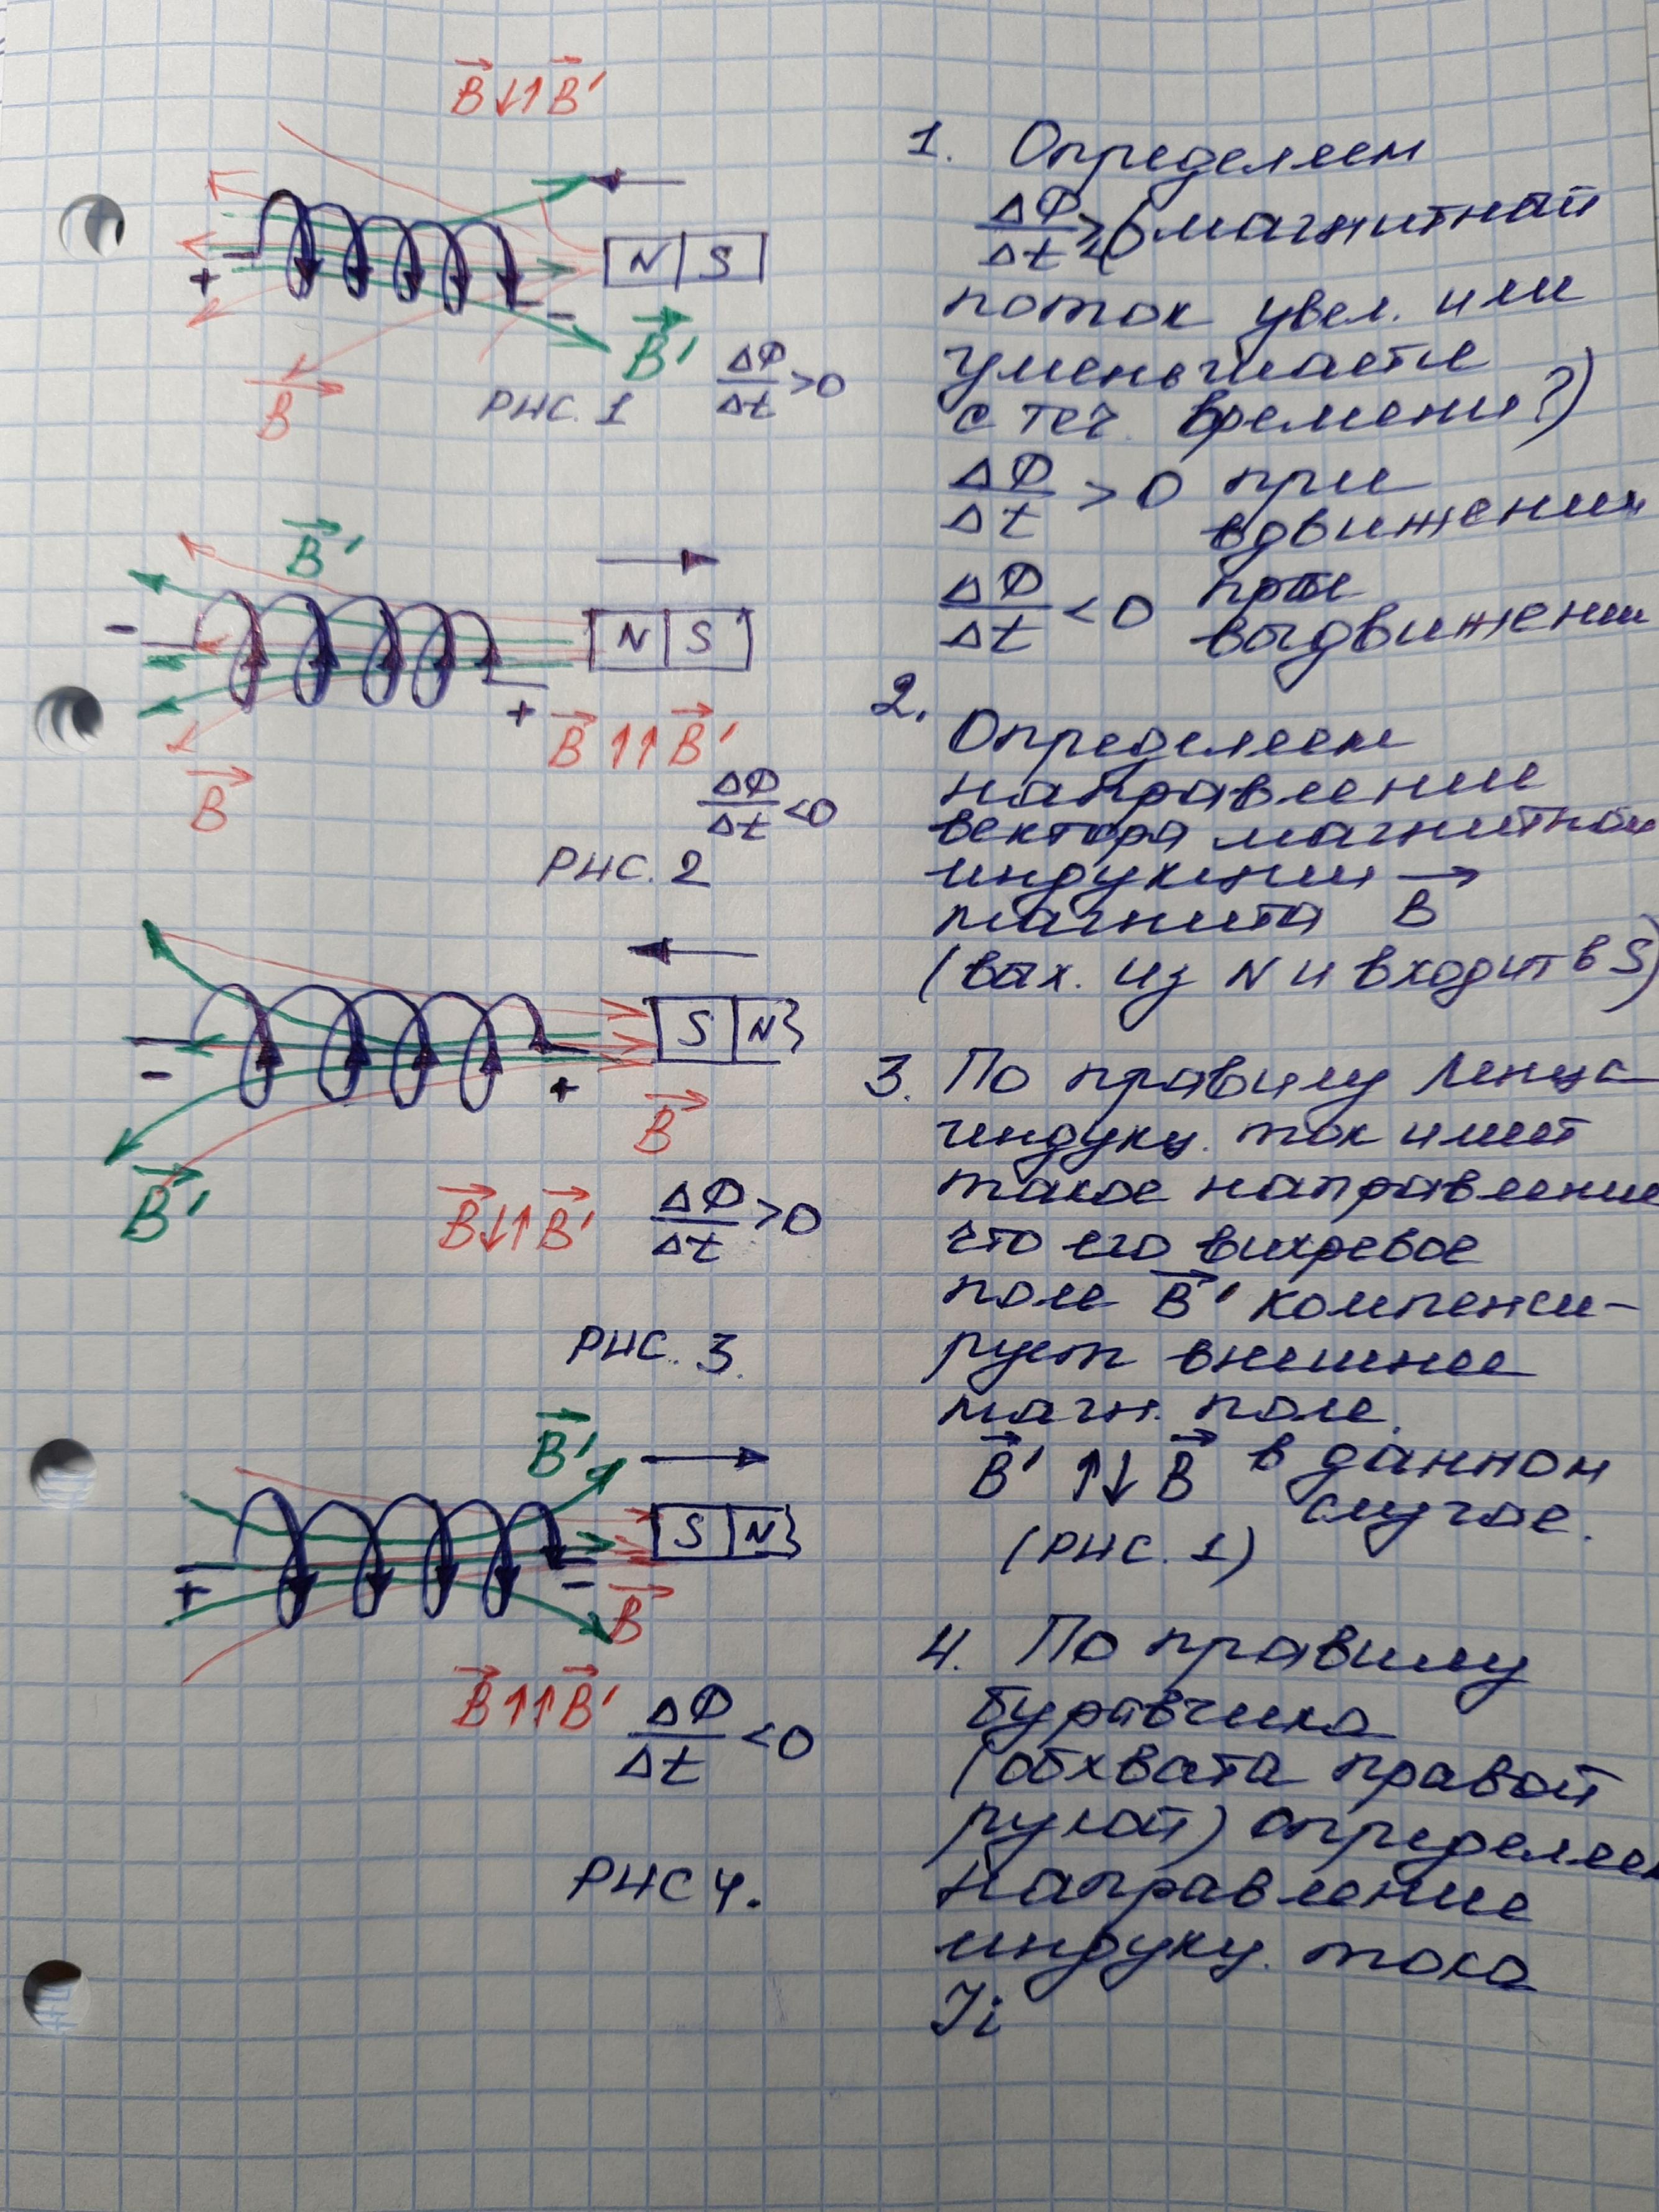 B↓↑B'
N S
+ −
−
B'
B
ΔФ/Δt >0
РИС. 1
B'
−
N S
+
B↑↑B'
B
ΔФ/Δt <0
РИС. 2
S N
−
+
B
B'
B↓↑B'
ΔФ/Δt >0
РИС. 3
B'
S N
+
−
B
B↑↑B'
ΔФ/Δt <0
РИС 4.
1. Определяем
ΔФ/Δt ≷0 (магнитный
поток увел. или
уменьшается
с теч. времени?)
ΔФ/Δt > 0 при
вдвижении
ΔФ/Δt < 0 при
выдвижении
2.
Определяем
направление
вектора магнитной
индукции
магнита B
(вых. из N и входит в S)
3. По правилу Ленца
индукц. ток имеет
такое направление
что его вихревое
поле B' компенси-
рует внешнее
магн. поле.
B' ↑↓ B в данном
случае.
(РИС. 1)
4. По правилу
буравчика
(обхвата правой
рукой) определяем
направление
индукц. тока
Ji